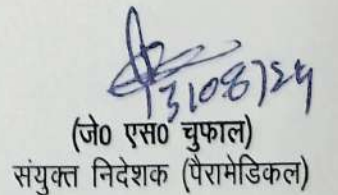 3108/24
(जे0 एस0 चुफाल)
संयुक्त निदेशक (पैरामेडिकल)